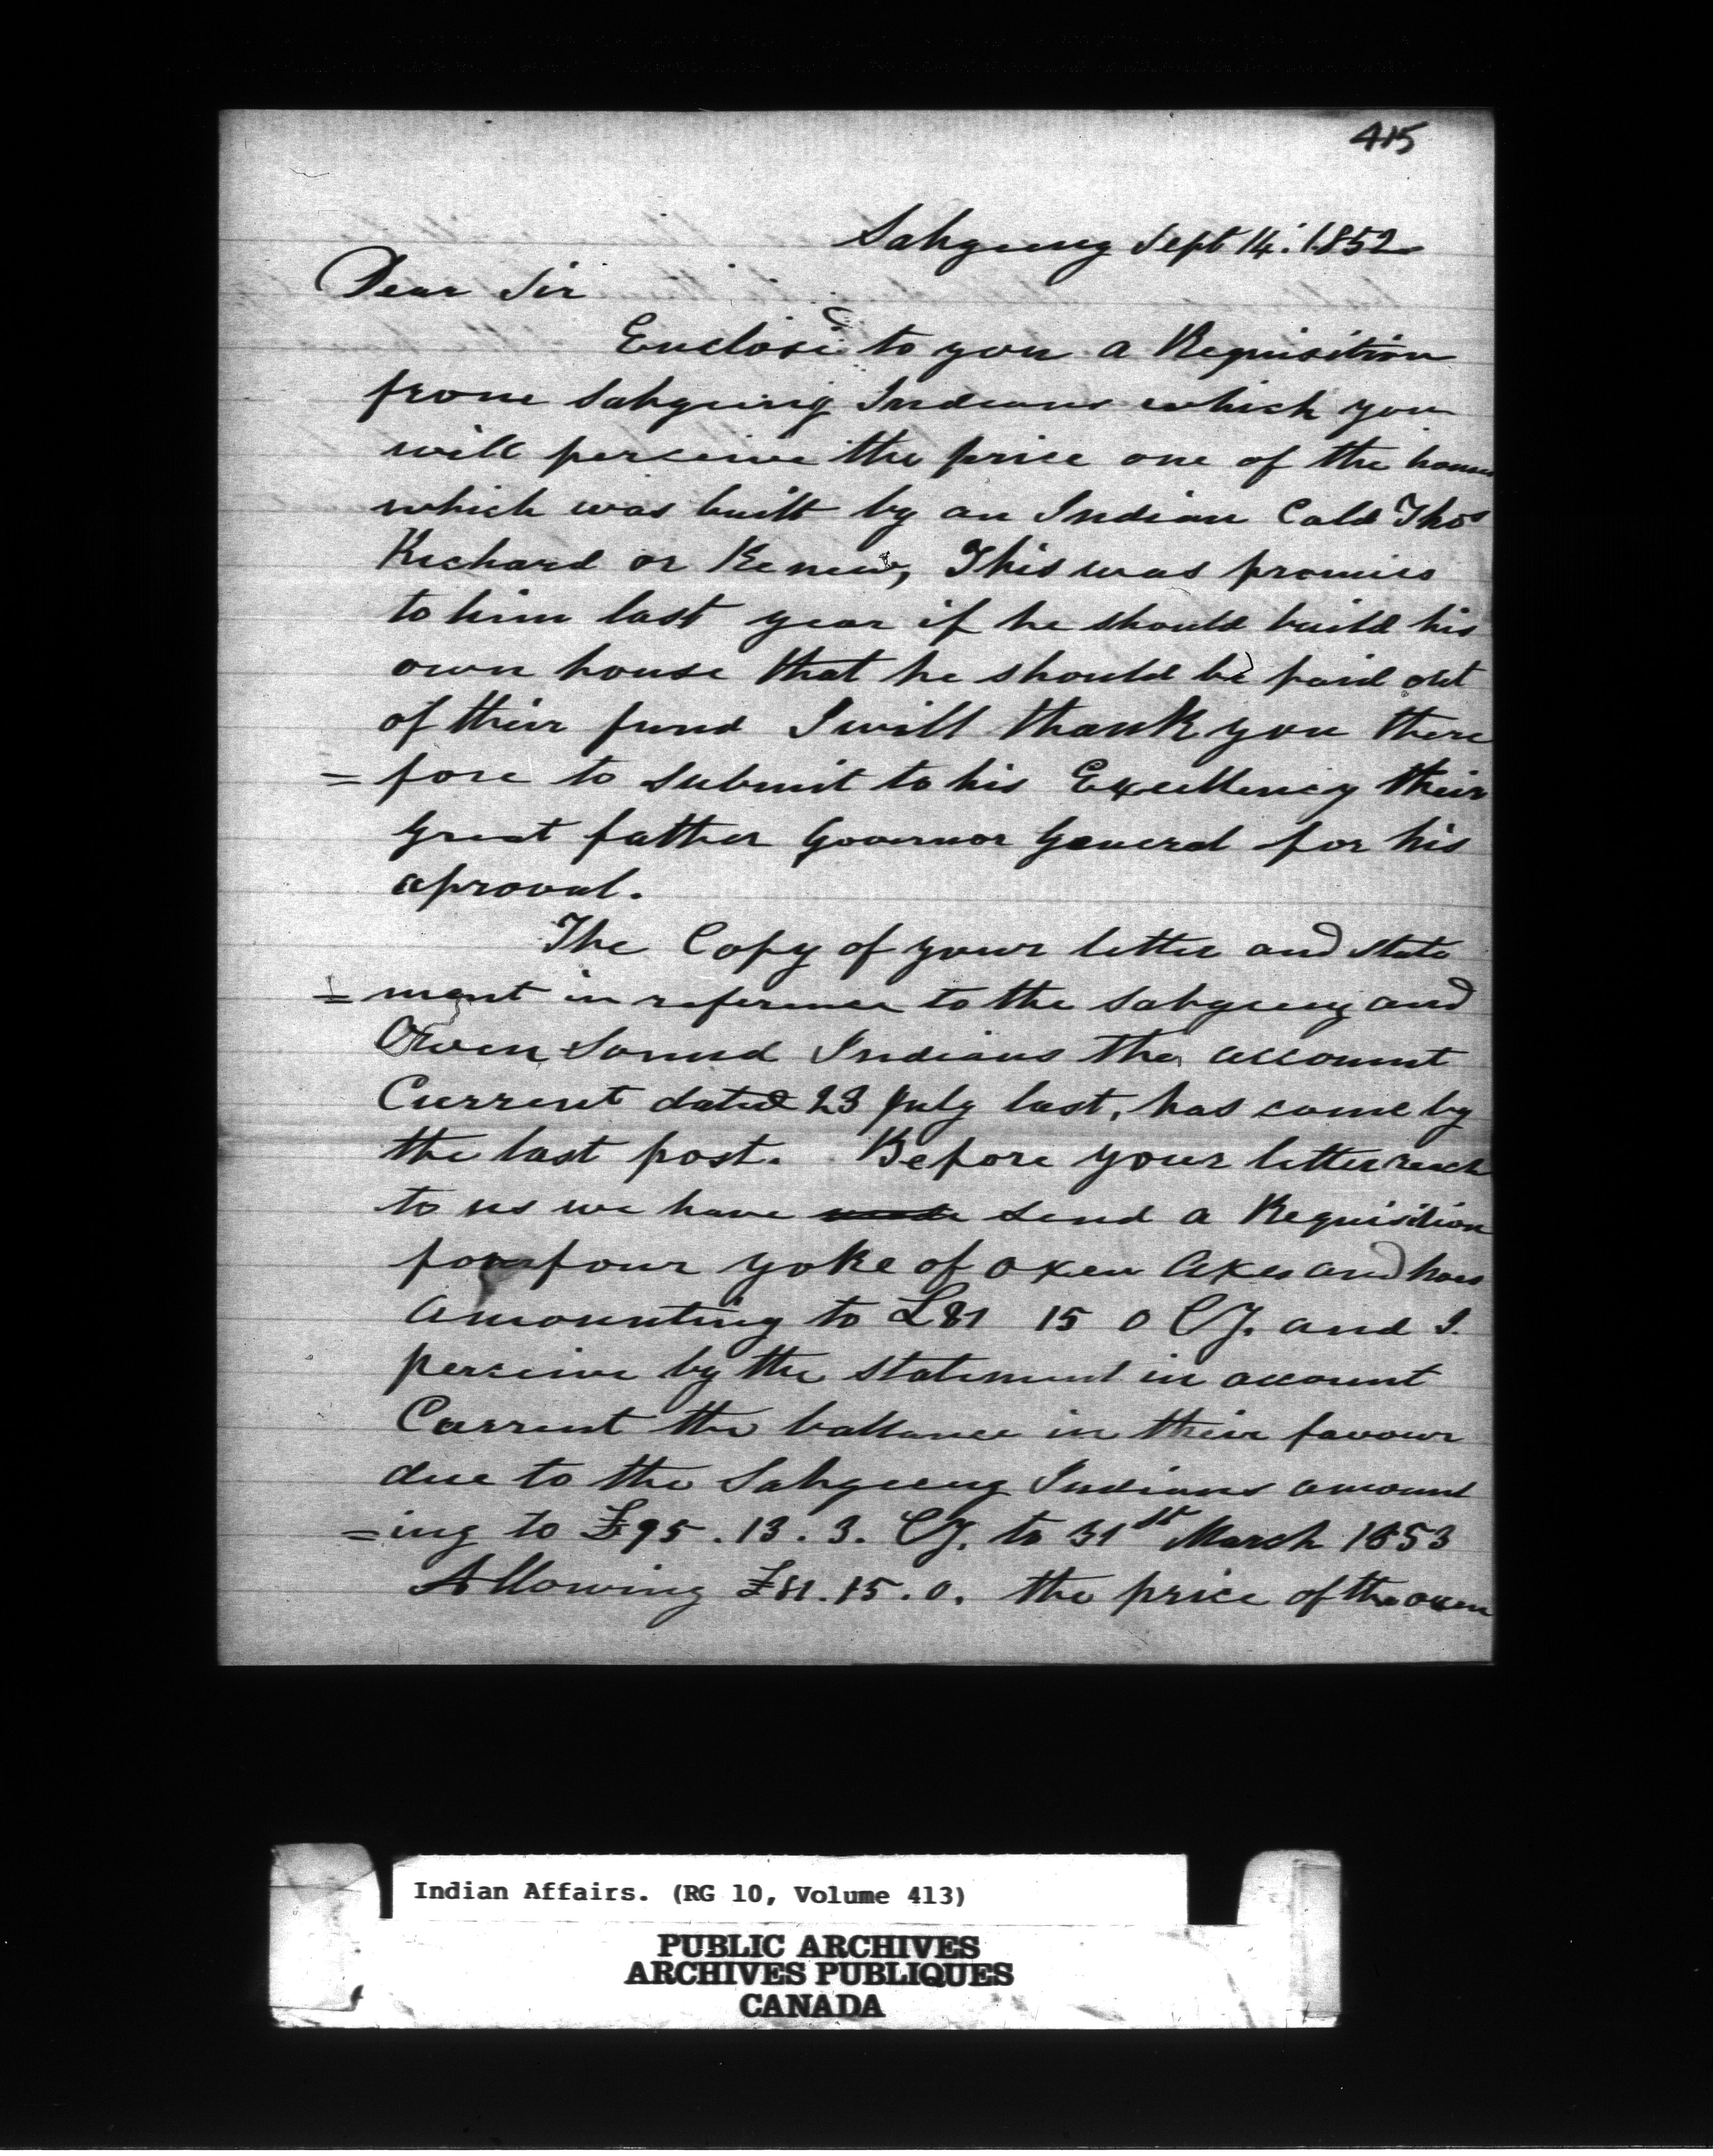 415
Sahgeeng Sept 14. 1852
Dear Sir
Enclosed to you a Requisition
from Sahgeeng Indians which you
will perceive the price one of the houses
which was built by an Indian Cald Thos
Richard or Kenew, This was promies
to him last year if he should build his
own house that he should be paid out
of their fund I will thank you there
= fore to submit to his Excellency their
great father Governor General for his
aproval.
The Copy of your letter and state
= ment in reference to the Sahgeeng and
Owen Sound Indians the account
Current dated 23 July last, has come by
the last post. Before your letter reach
to us we have send a Requisition
for four yoke of oxen Axes and hoes
amounting to £81 15 0 Cy. and I.
perceive by the statement in account
Current the ballance in their favour
due to the Sahgeeng Indians amount
=ing to £95.13.3. Cy. to 31st March 1853
Allowing £81.15.0. the price of the oxen
Indian Affairs. (RG 10, Volume 413)
PUBLIC ARCHIVES
ARCHIVES PUBLIQUES
CANADA